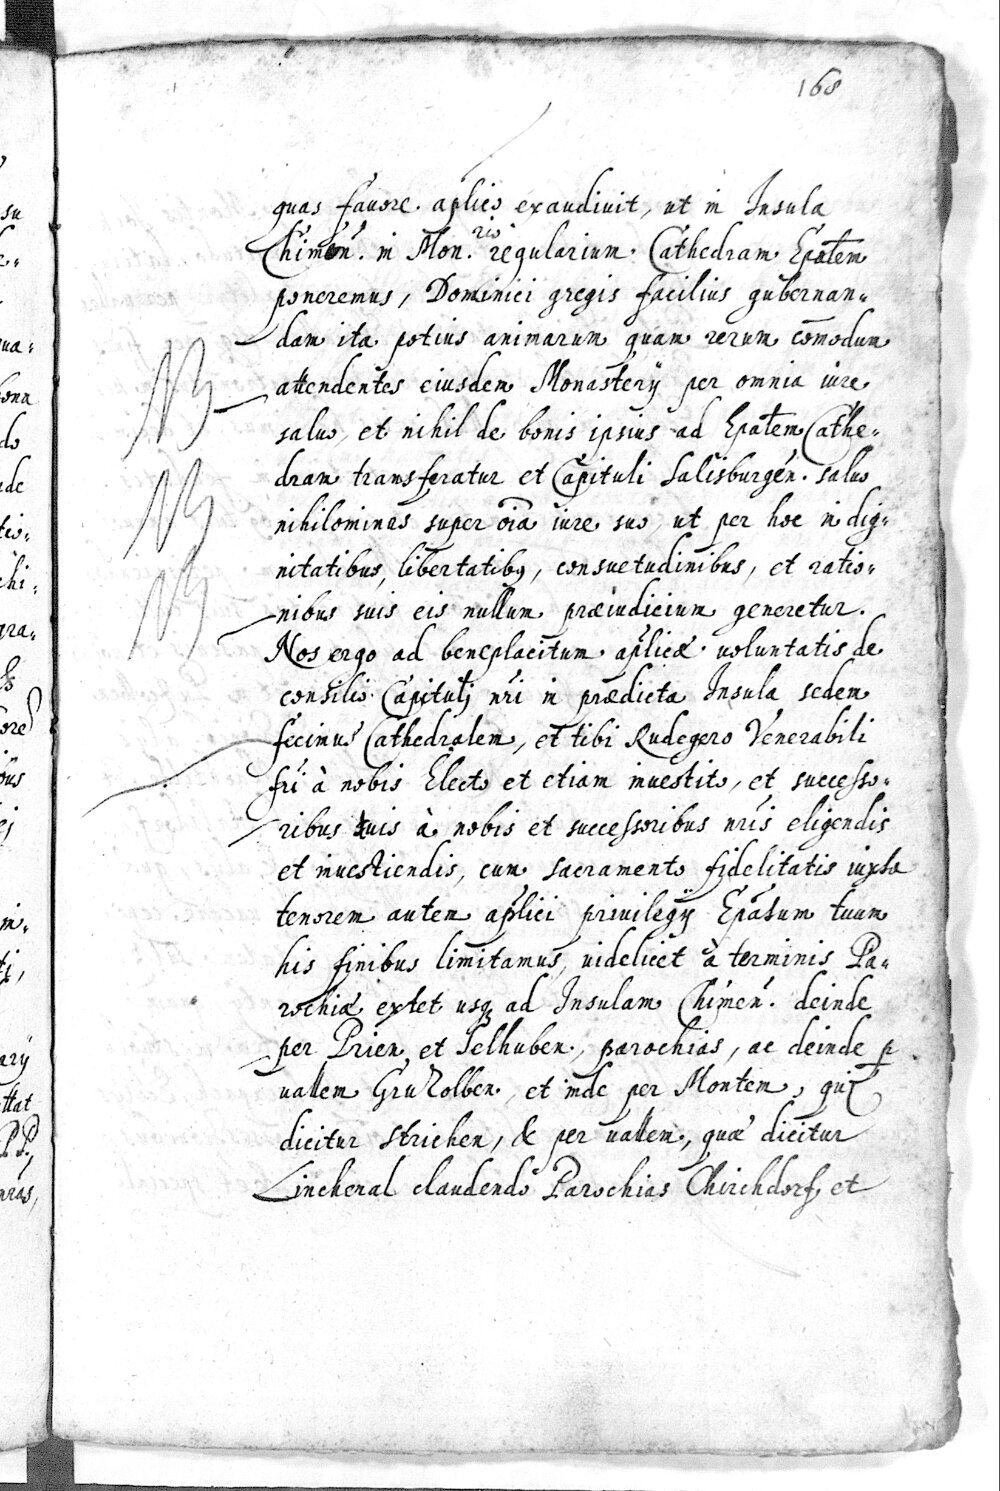 168
quas fauore. aplico exaudiuit, ut in Insula
Chimen̄. in Mon.rio regularium. Cathedram Ep̄atem
poneremus, Dominici gregis facilius gubernan=
dam ita potius animarum quam rerum com̄odum
attendentes eiusdem Monasterij per omnia iure
saluo, et nihil de bonis ipsius ad Ep̄atem Cathe=
dram transferatur et Capituli Salisburgen̄. saluo
nihilominus super oīa iure suo, ut per hoc in dig=
nitatibus, libertatibꝫ, consuetudinibus, et ratio=
nibus suis eis nullum præiudicium generetur.
Nos ergo ad beneplacitum. aplicæ. uoluntatis de
consilio. Capitulj nr̄i in prædicta Insula sedem
fecimus Cathedralem, et tibi Rudegero Venerabili
fr̄i à nobis Electo et etiam inuestito, et successo=
ribus tuis à nobis et successoribus nr̄is eligendis
et inuestiendis, cum sacramento fidelitatis iuxta
tenorem autem aplici priuilegij Ep̄atum tuum
his finibus limitamus, uidelicet à terminis Pa=
rochiæ extet usqꝫ ad Insulam Chimen̄. deinde
per Prien, et Selhuben., parochias, ac deinde ꝑ
uallem Gruzolben., et inde per Montem, qui
dicitur strichen, & per uallem, quæ dicitur
Lincheral claudendo Parochias Chirchdorf, et
su
ua:
do
de
tio:
chi:
gra:
m:
arij
ttat